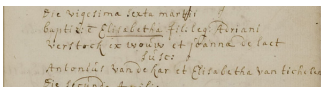 Die vigesima sexta martii
baptizt Elisabetha fil: legi: Adriani
verstock ex wouw et Joanna de laet
suscs:
Antonius van de kar et Elisabetha van tichelen
Die secunda Aprilis